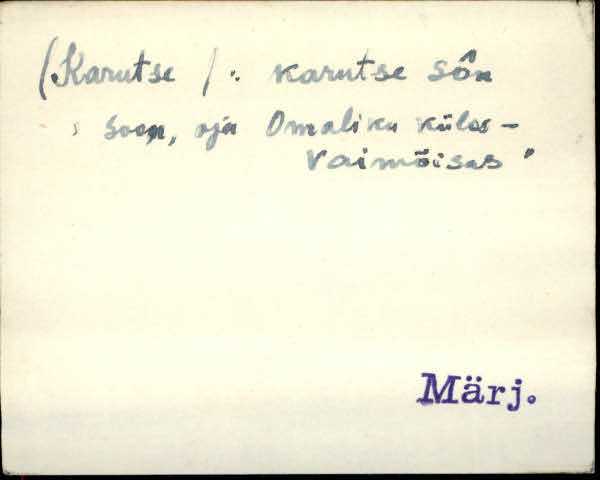 (Karutse /: karutse sôn
' soon, oja Omaliku külas -
Vaimõisas '
Märj.